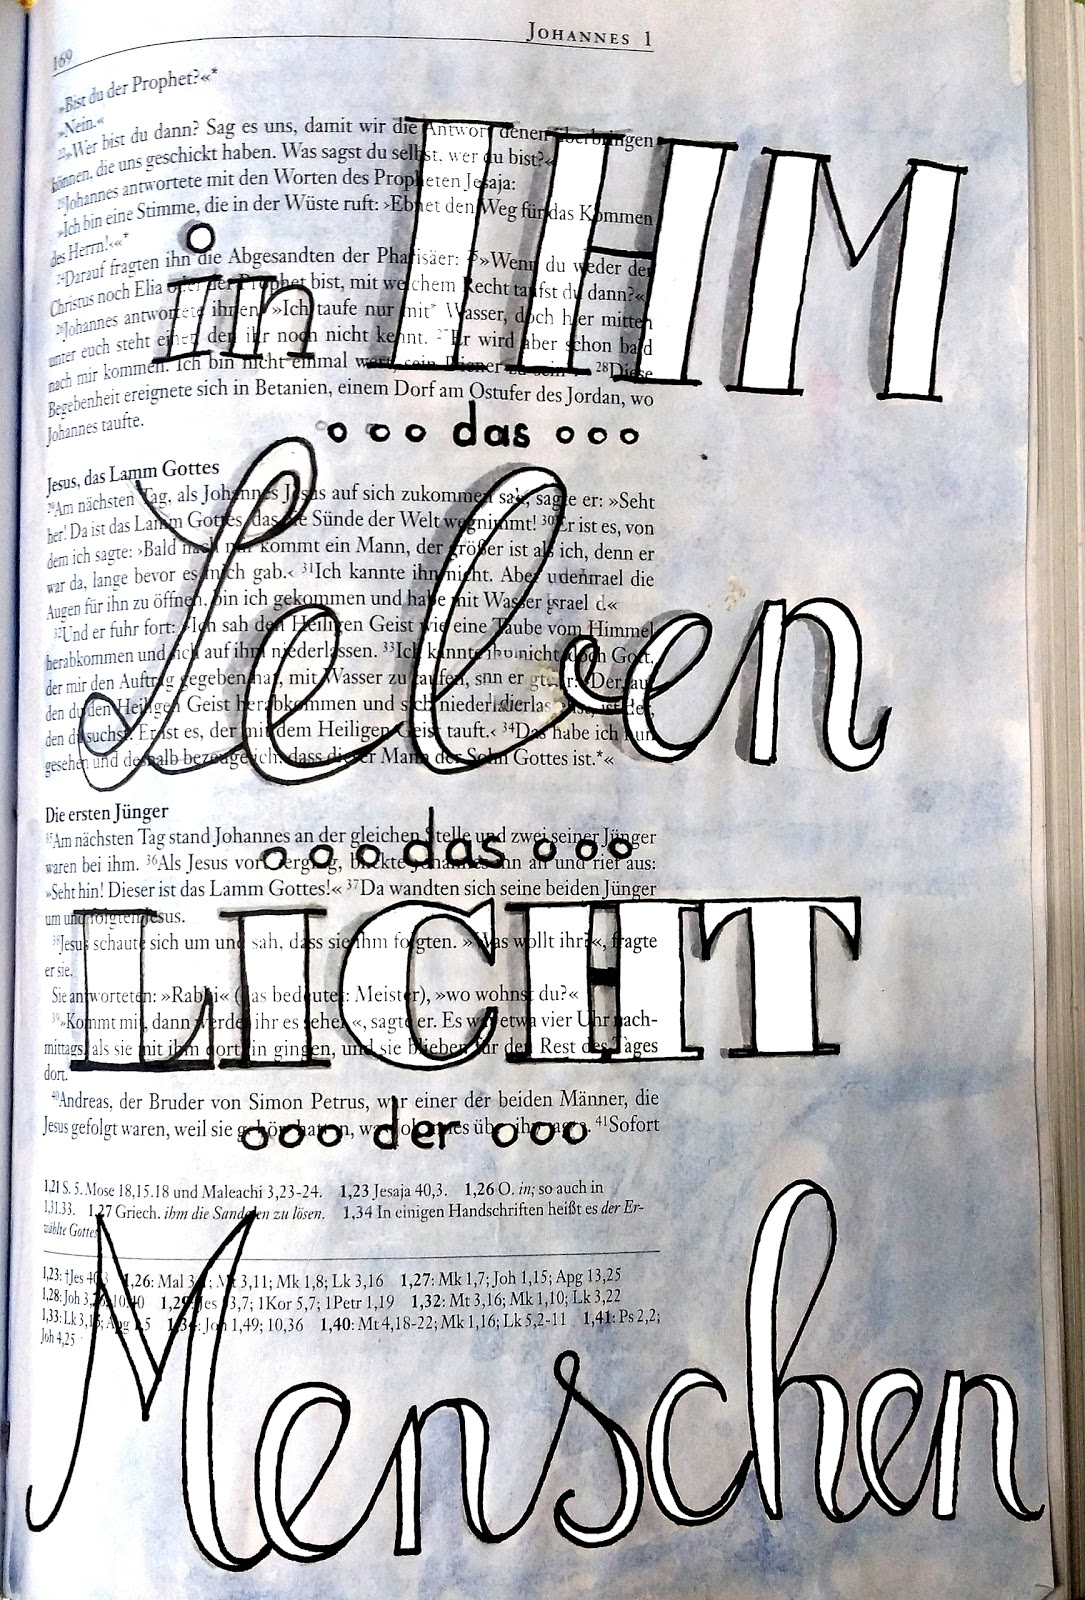 169
JOHANNES 1
»Bist du der Prophet?«*
»Nein.«
²²»Wer bist du dann? Sag es uns, damit wir die Antwort denen überbringen
können, die uns geschickt haben. Was sagst du selbst, wer du bist?«
²³Johannes antwortete mit den Worten des Propheten Jesaja:
»Ich bin eine Stimme, die in der Wüste ruft: ›Ebnet den Weg für das Kommen
des Herrn!‹«*
²⁴Darauf fragten ihn die Abgesandten der Pharisäer: ²⁵»Wenn du weder der
Christus noch Elia oder der Prophet bist, mit welchem Recht taufst du dann?«
²⁶Johannes antwortete ihnen: »Ich taufe nur mit* Wasser, doch hier mitten
unter euch steht einer, den ihr noch nicht kennt. ²⁷Er wird aber schon bald
nach mir kommen. Ich bin nicht einmal wert, sein Diener zu sein ²⁸Diese
Begebenheit ereignete sich in Betanien, einem Dorf am Ostufer des Jordan, wo
Johannes taufte.
in IHM
ooo das ooo
Jesus, das Lamm Gottes
²⁹Am nächsten Tag, als Johannes Jesus auf sich zukommen sah, sagte er: »Seht
her! Da ist das Lamm Gottes, das die Sünde der Welt wegnimmt! ³⁰Er ist es, von
dem ich sagte: ›Bald nach mir kommt ein Mann, der größer ist als ich, denn er
war da, lange bevor es mich gab.‹ ³¹Ich kannte ihn nicht. Aber die
Augen für ihn zu öffnen, bin ich gekommen und habe mit Wasser
³²Und er fuhr fort: »Ich sah den Heiligen Geist wie eine Taube vom Himmel
herabkommen und sich auf ihm niederlassen. ³³Ich kannte ihn nicht, doch Gott,
der mir den Auftrag gegeben hat, mit Wasser zu taufen, er ›Der, auf
den du den Heiligen Geist herabkommen und sich ist der,
den du suchst. Er ist es, der mit dem Heiligen Geist tauft.‹ ³⁴Das habe ich nun
gesehen und deshalb bezeuge ich, dass dieser Mann der Sohn Gottes ist.*«
Leben
Die ersten Jünger
³⁵Am nächsten Tag stand Johannes an der gleichen Stelle und zwei seiner Jünger
waren bei ihm. ³⁶Als Jesus vorüberging, blickte Johannes ihn an und rief aus:
ooo das ooo
»Seht hin! Dieser ist das Lamm Gottes!« ³⁷Da wandten sich seine beiden Jünger
um und folgten Jesus.
³⁸Jesus schaute sich um und sah, dass sie ihm folgten. »Was wollt ihr?«, fragte
er sie.
Sie antworteten: »Rabbi« (das bedeutet: Meister), »wo wohnst du?«
³⁹»Kommt mit, dann werdet ihr es sehen«, sagte er. Es war etwa vier Uhr nach-
mittags, als sie mit ihm dorthin gingen, und sie blieben für den Rest des Tages
dort.
LICHT
⁴⁰Andreas, der Bruder von Simon Petrus, war einer der beiden Männer, die
Jesus gefolgt waren, weil sie gehört hatten, was Johannes über ihn sagte. ⁴¹Sofort
ooo der ooo
1,21 S. 5. Mose 18,15.18 und Maleachi 3,23-24. 1,23 Jesaja 40,3. 1,26 O. in; so auch in
1,31.33. 1,27 Griech. ihm die Sandalen zu lösen. 1,34 In einigen Handschriften heißt es der Er-
wählte Gottes
1,23: †Jes 40,3 1,26: Mal 3,1; Mt 3,11; Mk 1,8; Lk 3,16 1,27: Mk 1,7; Joh 1,15; Apg 13,25
1,28: Joh 3,26; 10,40 1,29: Jes 53,7; 1Kor 5,7; 1Petr 1,19 1,32: Mt 3,16; Mk 1,10; Lk 3,22
1,33: Lk 3,16; Apg 1,5 1,34: Joh 1,49; 10,36 1,40: Mt 4,18-22; Mk 1,16; Lk 5,2-11 1,41: Ps 2,2;
Joh 4,25
Menschen